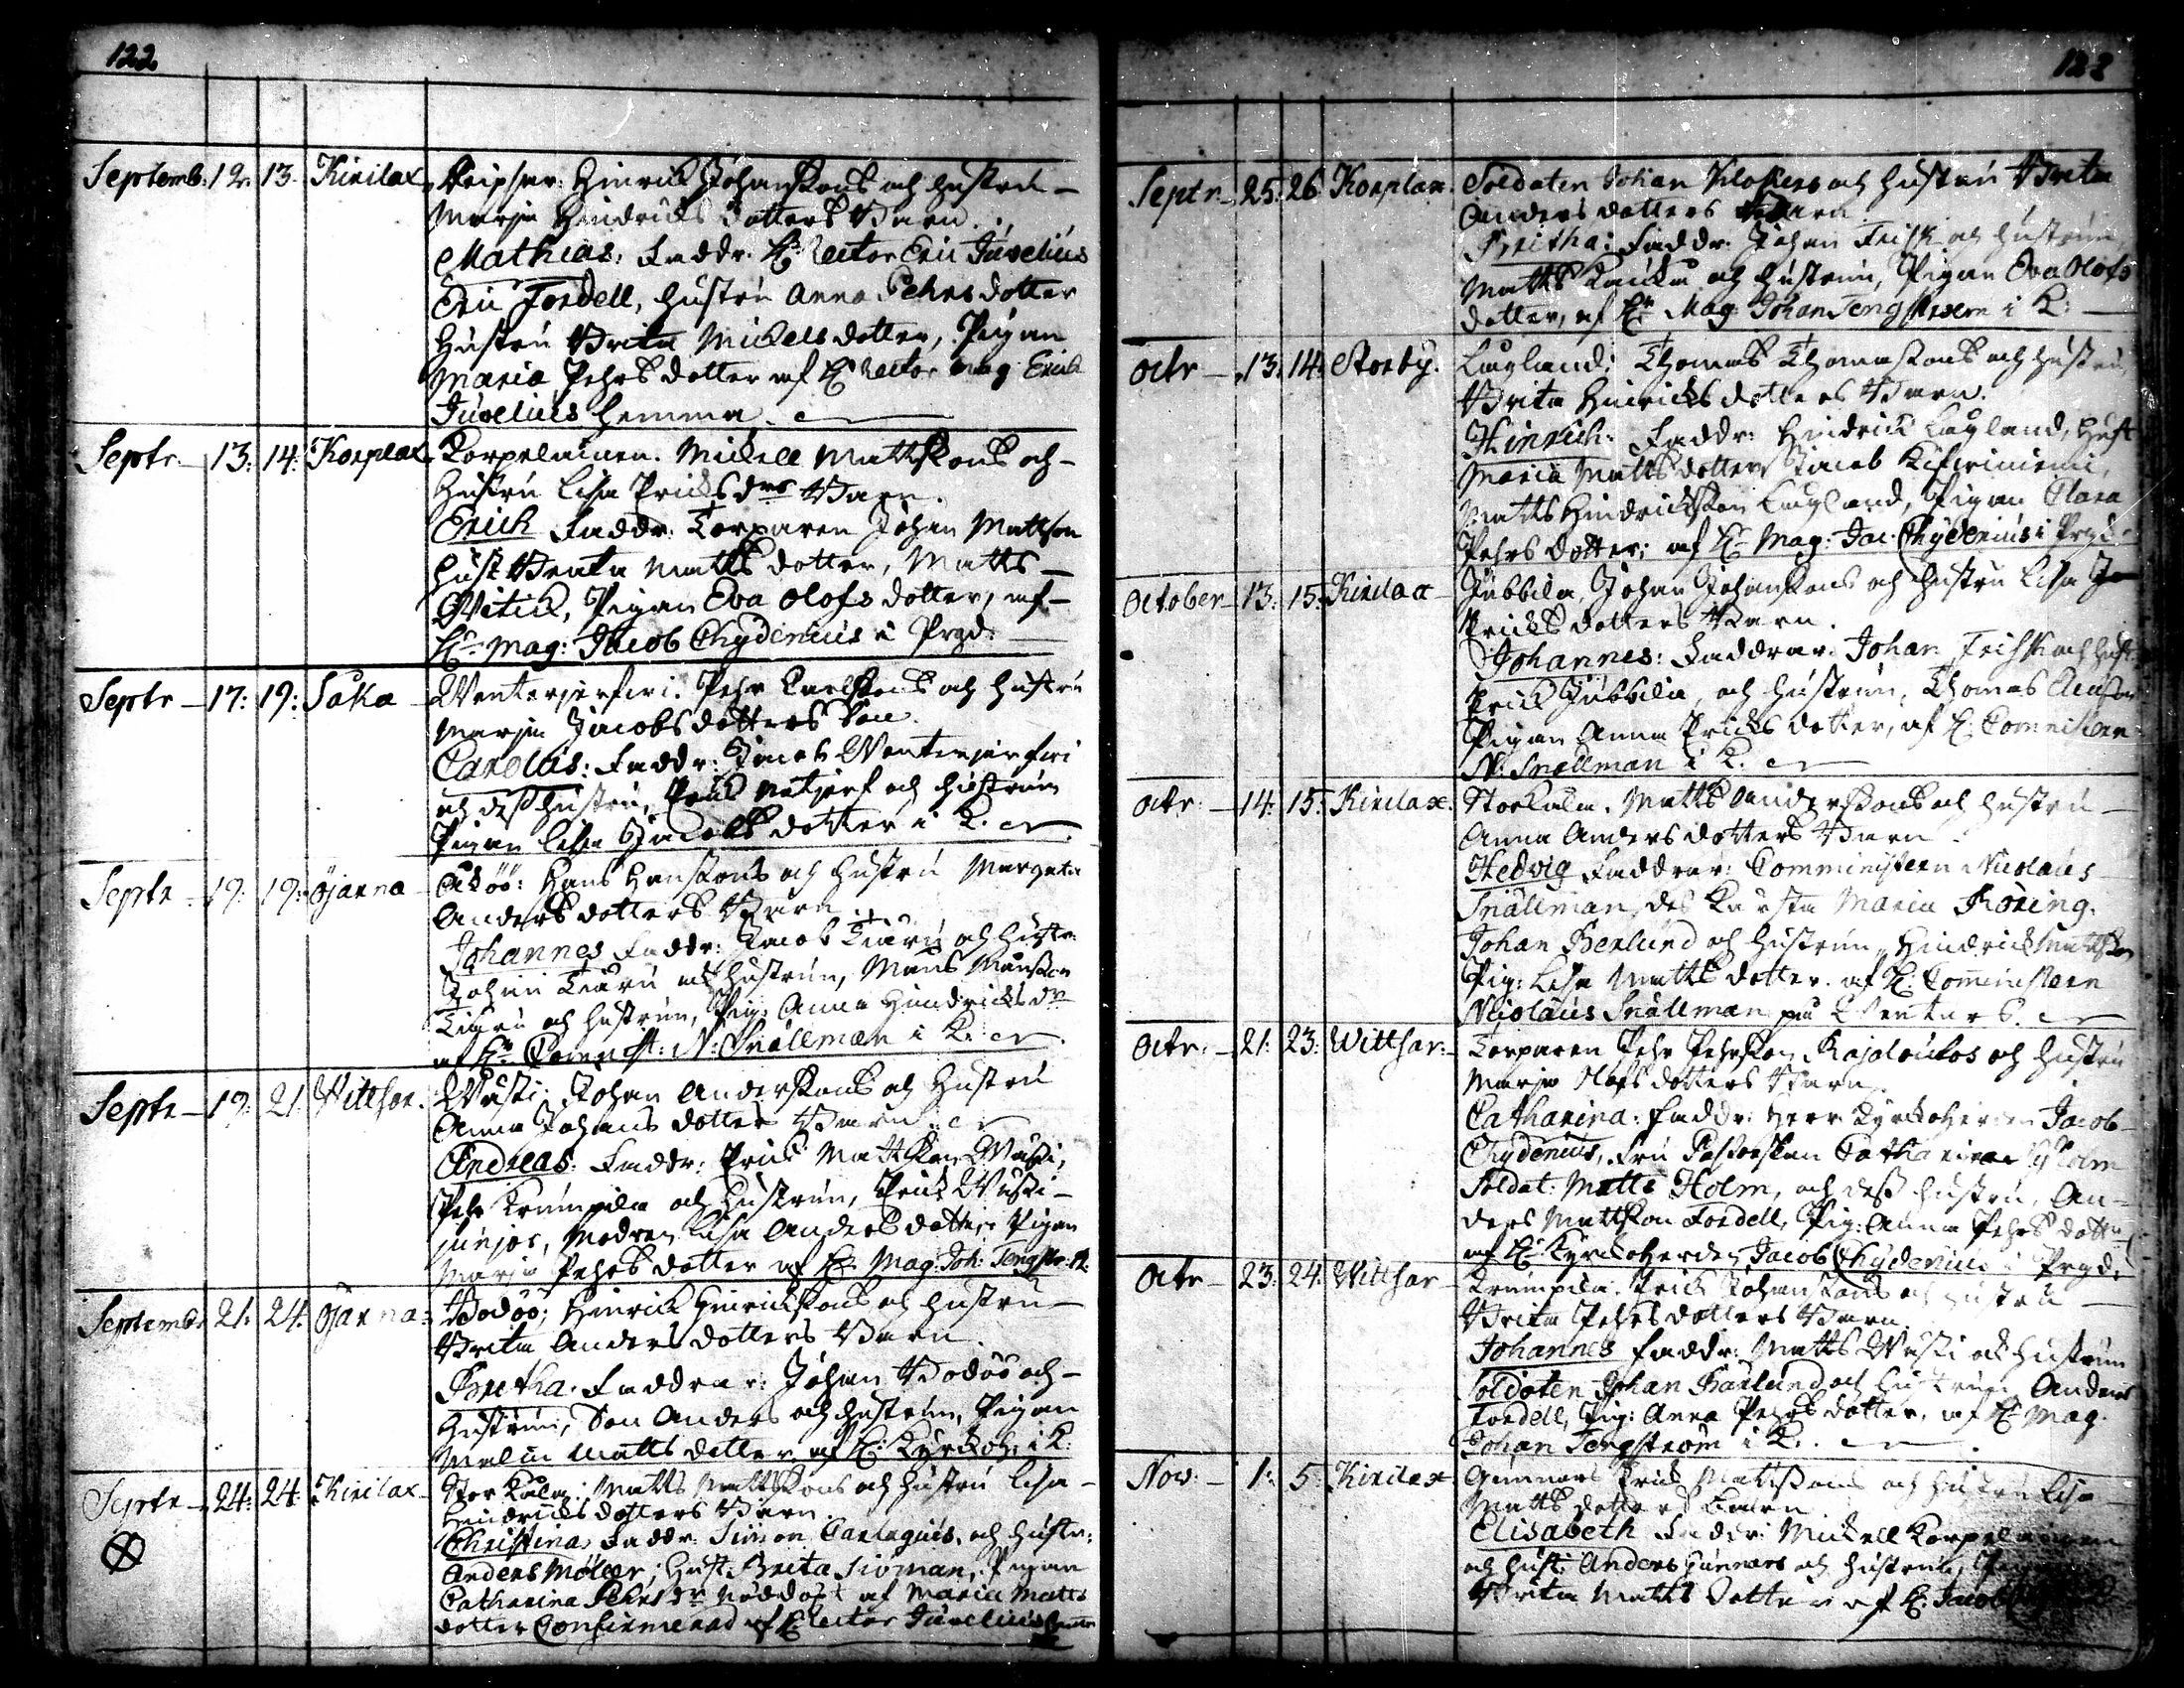 122
Septemb: 12. 13. Kirilax Skipsar: Hinrich Johanssons och hustru
Marja Hindricks dotters Barn.
Mathias: Faddr. H: Rector Eric Juvelius
Eric Fordell, hustru Anna Pehrs dotter
Hustru Brita Mickels dotter, Pigan
Maria Pehrs dotter af H Rector Mag Erick
Juvelius hemma.
Septr. 13: 14: Korplax Korpelainen. Mickell Mattssons och
Hustru Lisa Ericks drs Barn.
Erich Faddr. Torparen Johan Mattson
Hust Beata Matts dotter, Matts
Witick, Pigan Eva Olofs dotter, af
Hr Mag: Jacob Chydenius i Prgd:
Septr 17: 19: Såka Wenterjerfwi. Pehr Carlssons och hustru
Marja Jacobs dotters Son.
Carolus: Faddr: Jacob Wenterjerfwi
och dess hustru, Erick och hustrun
Pigan Lisa Jacobs dotter i K.
Septr 19: 19: Öjanna Åköö: Hans Hanssons och hustru Margeta
Anders dotters Barn.
Johannes Faddr: Jacob Tiäru och Hustr:
Johan Tiäru och hustrun, Måns Månsson
Tiäru och hustrun, Pig: Anna Hindricks dr
af Hr Comnist: N: Snällman i K.
Septr 19: 21 Wittsar. Wästi; Johan Anderssons och Hustru
Anna Johans dotters Barn.
Andreas: Faddr: Erick Mattsson Wästi,
Pehr Krumpila och Hustrun, Erick Wästi
junior, Modren Lisa Anders dotter Pigan
Marja Pehrs dotter af H: Mag: Joh: Tengstr. K
Septembr 21. 24. Öjanna: Bodöö; Hinrick Hinrickssons och hustru
Brita Anders dotters Barn.
Britha. Faddrar: Johan Bodöö och
Hustrun, Son Anders och hustrun, Pigan
Malin Matts dotter af H: Kyrckoh: i K:
Septr 24: 24. Kirilax Storkåla; Matts Mattssons och hustru Lisa
Hindricks dotters Barn.
Christina Faddr. Simon Carlaquis, och hustr:
Anders Möller; Hust. Breta Siöman, Pigan
Catharina Pehrs dr nöddöpt af Maria Matts
dotter Confirmerad af H: Rector Juvelius
123
Septr 25: 26 Korplax. Soldaten Johan Klockars och hustru Brita
Anders dotters Barn.
Britha: Faddr: Johan Frisk och hustrun,
Matts och hustrun, Pigan Eva Olofs
dotter, af Hr Mag: Johan Tengström i K:
Octr 13: 14: Storby. Lågland: Thomas Thomassons och hustru
Brita Hinricks dotters Barn.
Hinrich: Faddr: Hindrick Lågland, Hust
Maria Matts dotter Jacob
Matts Hindricksson Lågland, Pigan Clara
Pehrs dotter; af Hr Mag: Jac: Chydenius i Prgd
October 13: 15: Kirilax Jubbila, Johan Johanssons och hustru Lisa
Ericks dotters Barn.
Johannes: Faddrar. Johan Frisk och hust.
Erick Jubbila, och hustrun, Thomas
Pigan Anna Ericks dotter, af H. Comnistern
N: Snällman i K.
Octr: 14: 15: Kirilax. Storkåla. Matts Anderssons och hustru
Anna Anders dotters Barn.
Hedwig Faddrar: Comministern Nicolaus
Snällman, des Kärsta Maria Röring.
Johan Berlund och hustrun, Hindrick Mattsson
Pig: Lisa Matts dotter. af H. Cominstern
Nicolaus Snällman på
Octr: 21: 23: Wittsar: Torparen Pehr Pehrsson Kajdoukos och hustru
Marja Olofs dotters Barn.
Catharina: Faddr: Herr Kyrkoherden Jacob
Chydenius, Fru Pastorskan Catharina
Soldat: Matts Holm, och dess hustru, An-
ders Mattsson Fordell, Pig: Anna Pehrs dotter
af Hr Kyrckoherden Jacob Chydenius i Prgd.
Octr 23: 24: Wittsar Krumpila: Erick Johanssons och hustru
Brita Pehrs dotters Barn.
Johannes Faddr: Matts Wästi och hustrun
Soldaten Johan Barlund och hustrun Anders
Fordell, Pig: Anna Pehrs dotter, af H: Mag:
Johan Tengström i K.
Nov: 1: 5 Kirilax Gunnars Erick Mattssons och hustru Lisa
Matts dotters Barn
Elisabeth Faddr: Mickell Korpelainen
och hust. Anders Gunnars och hustrun,
Brita Matts dotter af H. Jacob